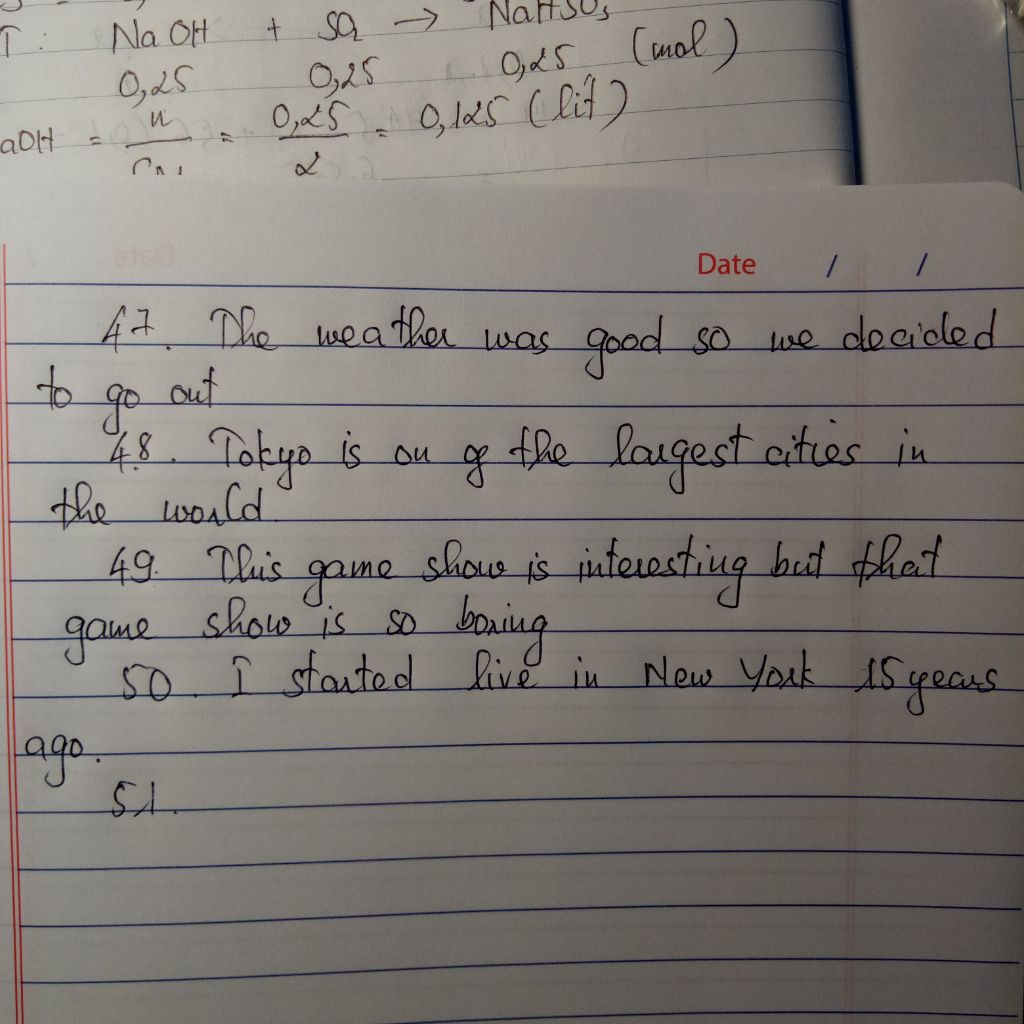 T: NaOH + SO2 → NaHSO3
0,25 0,25 0,25 (mol)
aOH = n = 0,25 = 0,125 (lít)
2
Date / /
47. The weather was good so we decided
to go out
48. Tokyo is on of the largest cities in
the world
49. This game show is interesting but that
game show is so boring
50. I started live in New York 15 years
ago.
51.